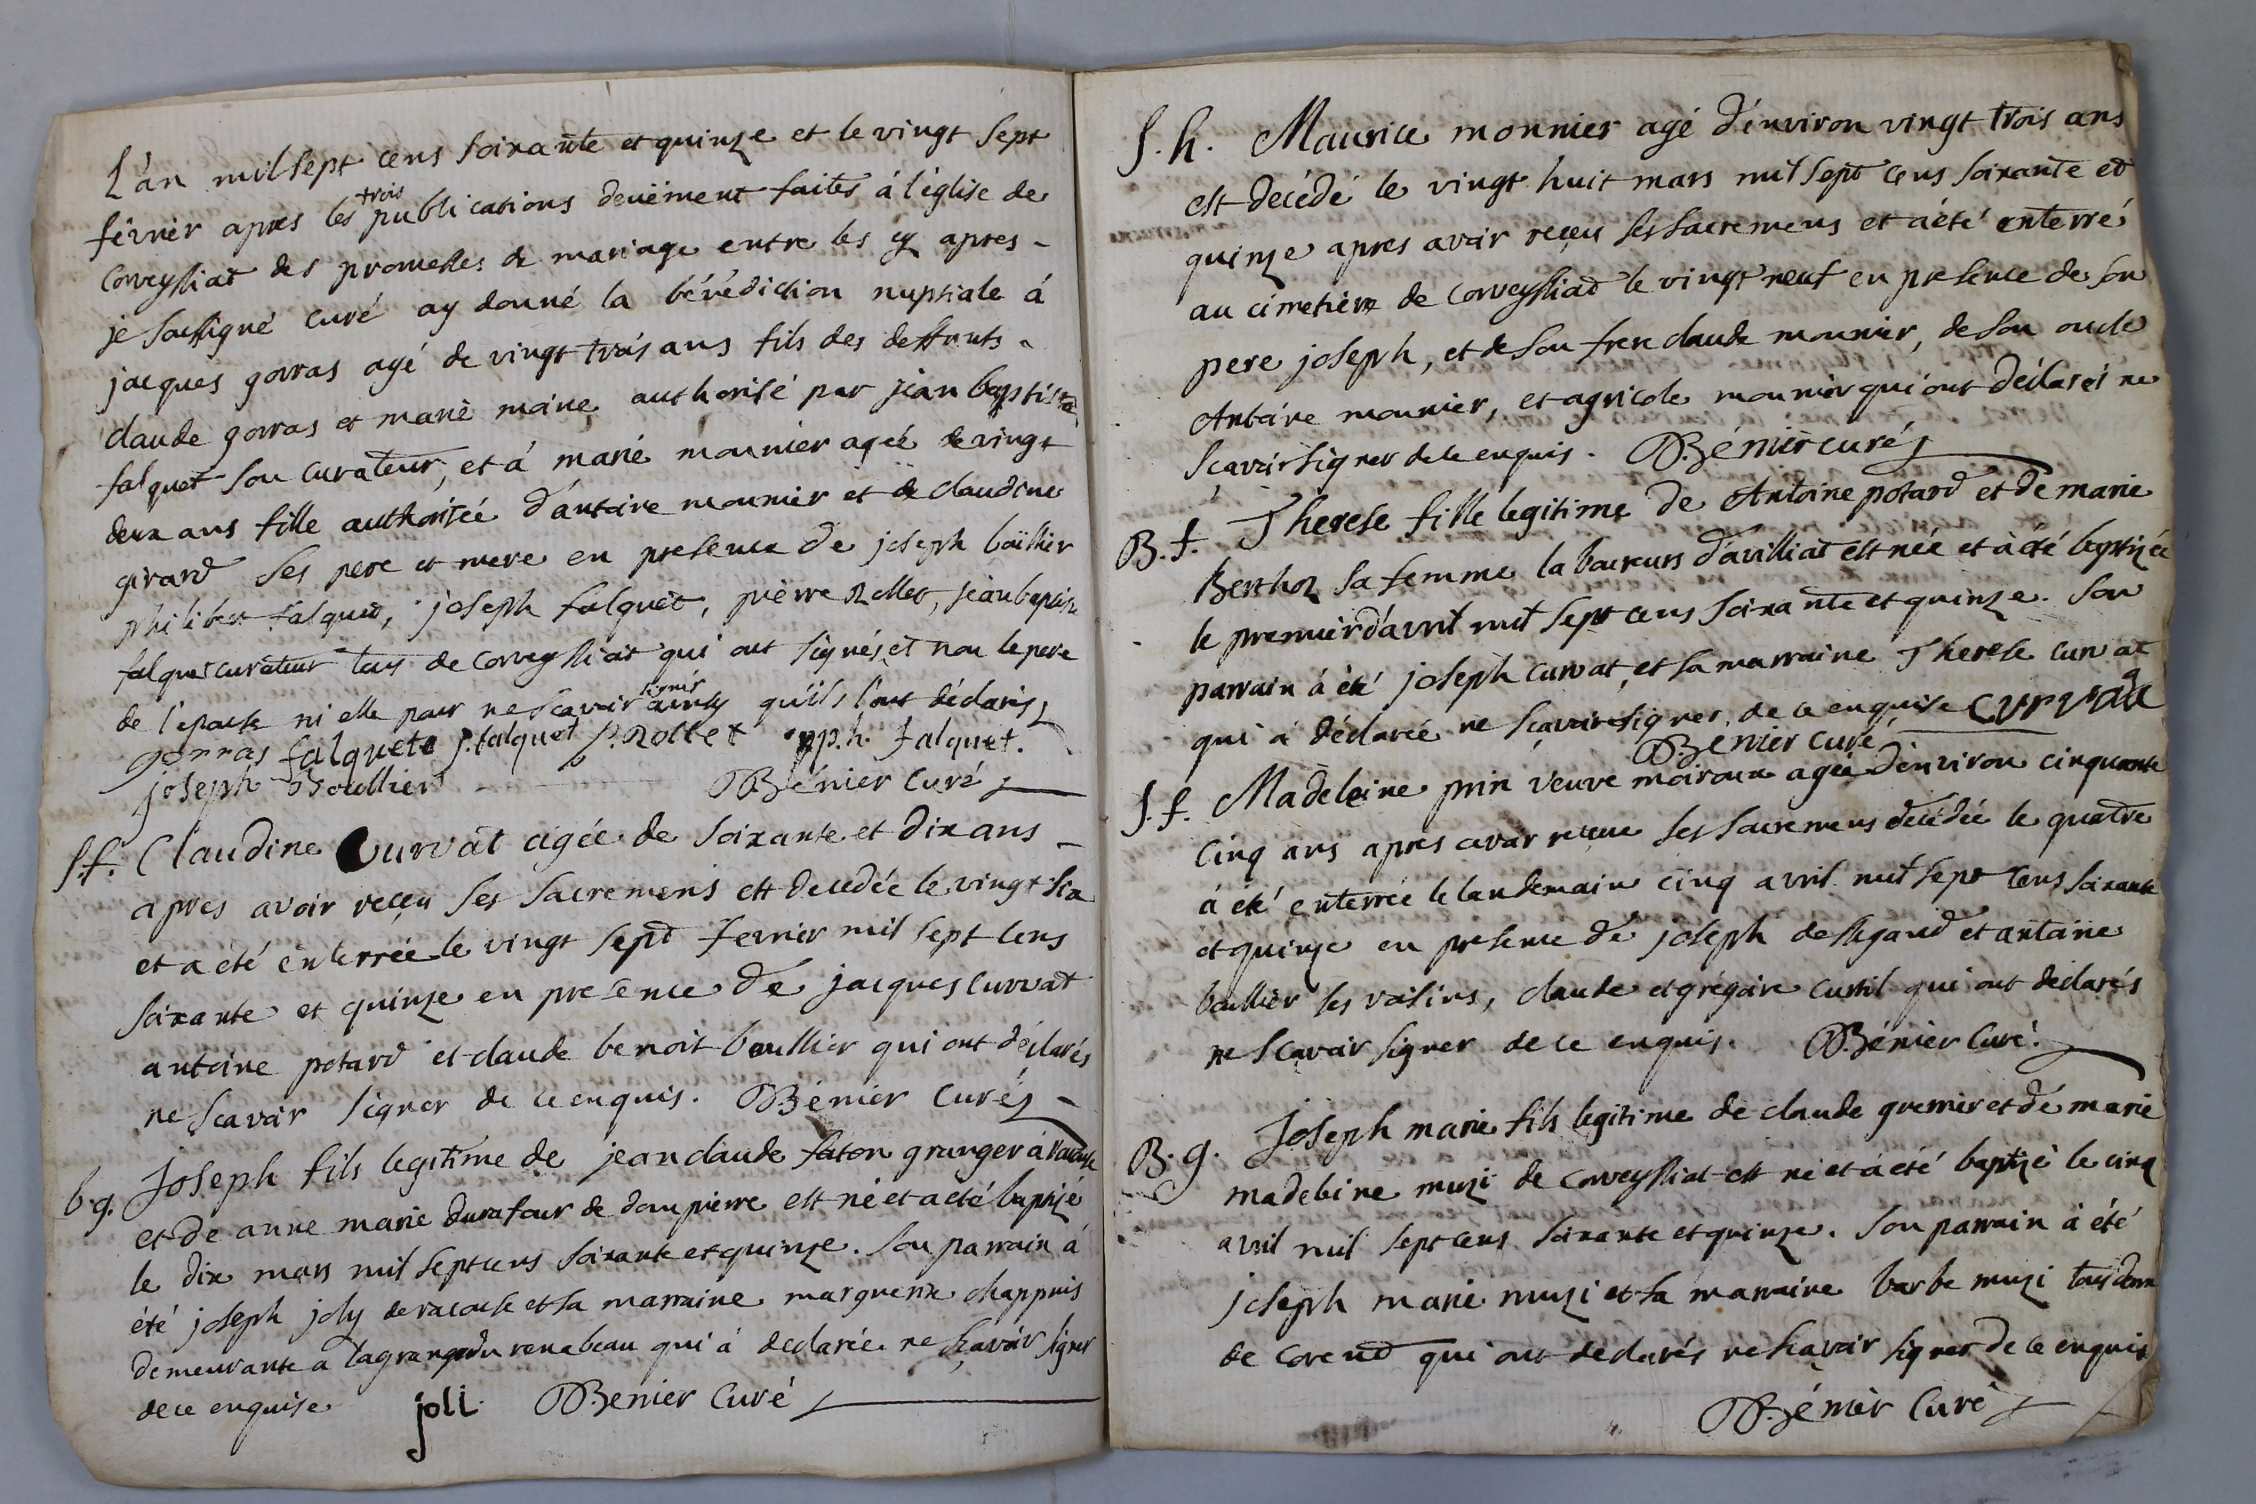 L'an mil sept cens soixante et quinze et le vingt sept
fevrier apres les trois publications deüement faites à l'église de
Corveyssiat des promesses de mariage entre les cy apres -
je soussigné curé ay donné la bénédiction nuptiale à
jacques gorras agé de vingt trois ans fils des deffunts -
claude gorras et marie moine authorisé par jean baptiste
falquet son curateur, et à marie monnier agée de vingt
deux ans fille authorisée d'antoine monnier et de claudine
girard ses pere et mere en presence de joseph boüillier
philibert falquet, joseph falquet, pierre Rollet, jean baptiste
falquet curateur tous de Corveyssiat qui ont signés et non le pere
de l'epouse ni elle pour ne scavoir signer ainsy qu'ils l'ont déclarés
gorras falquete j. falquet P. Rollet ph. falquet.
joseph Boullier Bénier Curé
S.f. Claudine Curvat agée de soixante et dix ans -
apres avoir reçeu ses sacremens est decedée le vingt six
et a été enterrée le vingt sept fevrier mil sept cens
soixante et quinze en presence de jacques curvat
antoine potard et claude benoit boullier qui ont déclarés
ne scavoir signer de ce enquis. Bénier Curé -
b.g. Joseph fils legitime de jean claude faton granger à racouse
et de anne marie durafour de dompierre est né et a été baptizé
le dix mars mil sept cens soixante et quinze. son parrain à
été joseph joly de racouse et sa marraine marguerite chappuis
demeurante a la grange du renebeau qui à declarée ne scavoir signer
de ce enquise joli Benier Curé
S.h. Maurice monnier agé d'environ vingt trois ans
est decédé le vingt huit mars mil sept cens soixante et
quinze apres avoir reçeu ses sacremens et a été enterré
au cimetiere de Corveyssiat le vingt neuf en presence de son
pere joseph, et de son frere claude monnier, de son oncle
Antoine monnier, et agricole monnier qui ont déclarés ne
sçavoir signer de ce enquis. Bénier curé
B.f. Therese fille legitime de Antoine potard et de marie
Berthoz sa femme laboureurs d'avilliat est née et à été baptizée
le premier d'avril mil sept cens soixante et quinze. son
parrain à été joseph curvat, et sa marraine Therese curvat
qui à déclarée ne sçavoir signer, de ce enquise curvat
Benier curé
S.f. Madeleine prin veuve moiroux agée d'environ cinquante
cinq ans apres avoir reçeue ses sacremens decédée le quatre
à été enterrée le landemain cinq avril mil sept cens soixante
et quinze en presence de joseph dessegaud et antoine
boullier ses voisins, claude et grégoire custil qui ont déclarés
ne scavoir signer de ce enquis. Bénier Curé.
B.g. Joseph marie fils legitime de claude grenier et de marie
madeleine muzi de corveyssiat est né et à été baptizé le cinq
avril mil sept cens soixante et quinze. son parrain à été
joseph marie muzi et sa marraine barbe muzi tous deux
de Corend qui ont declarés ne scavoir signer de ce enquis
B. Bénier Curé